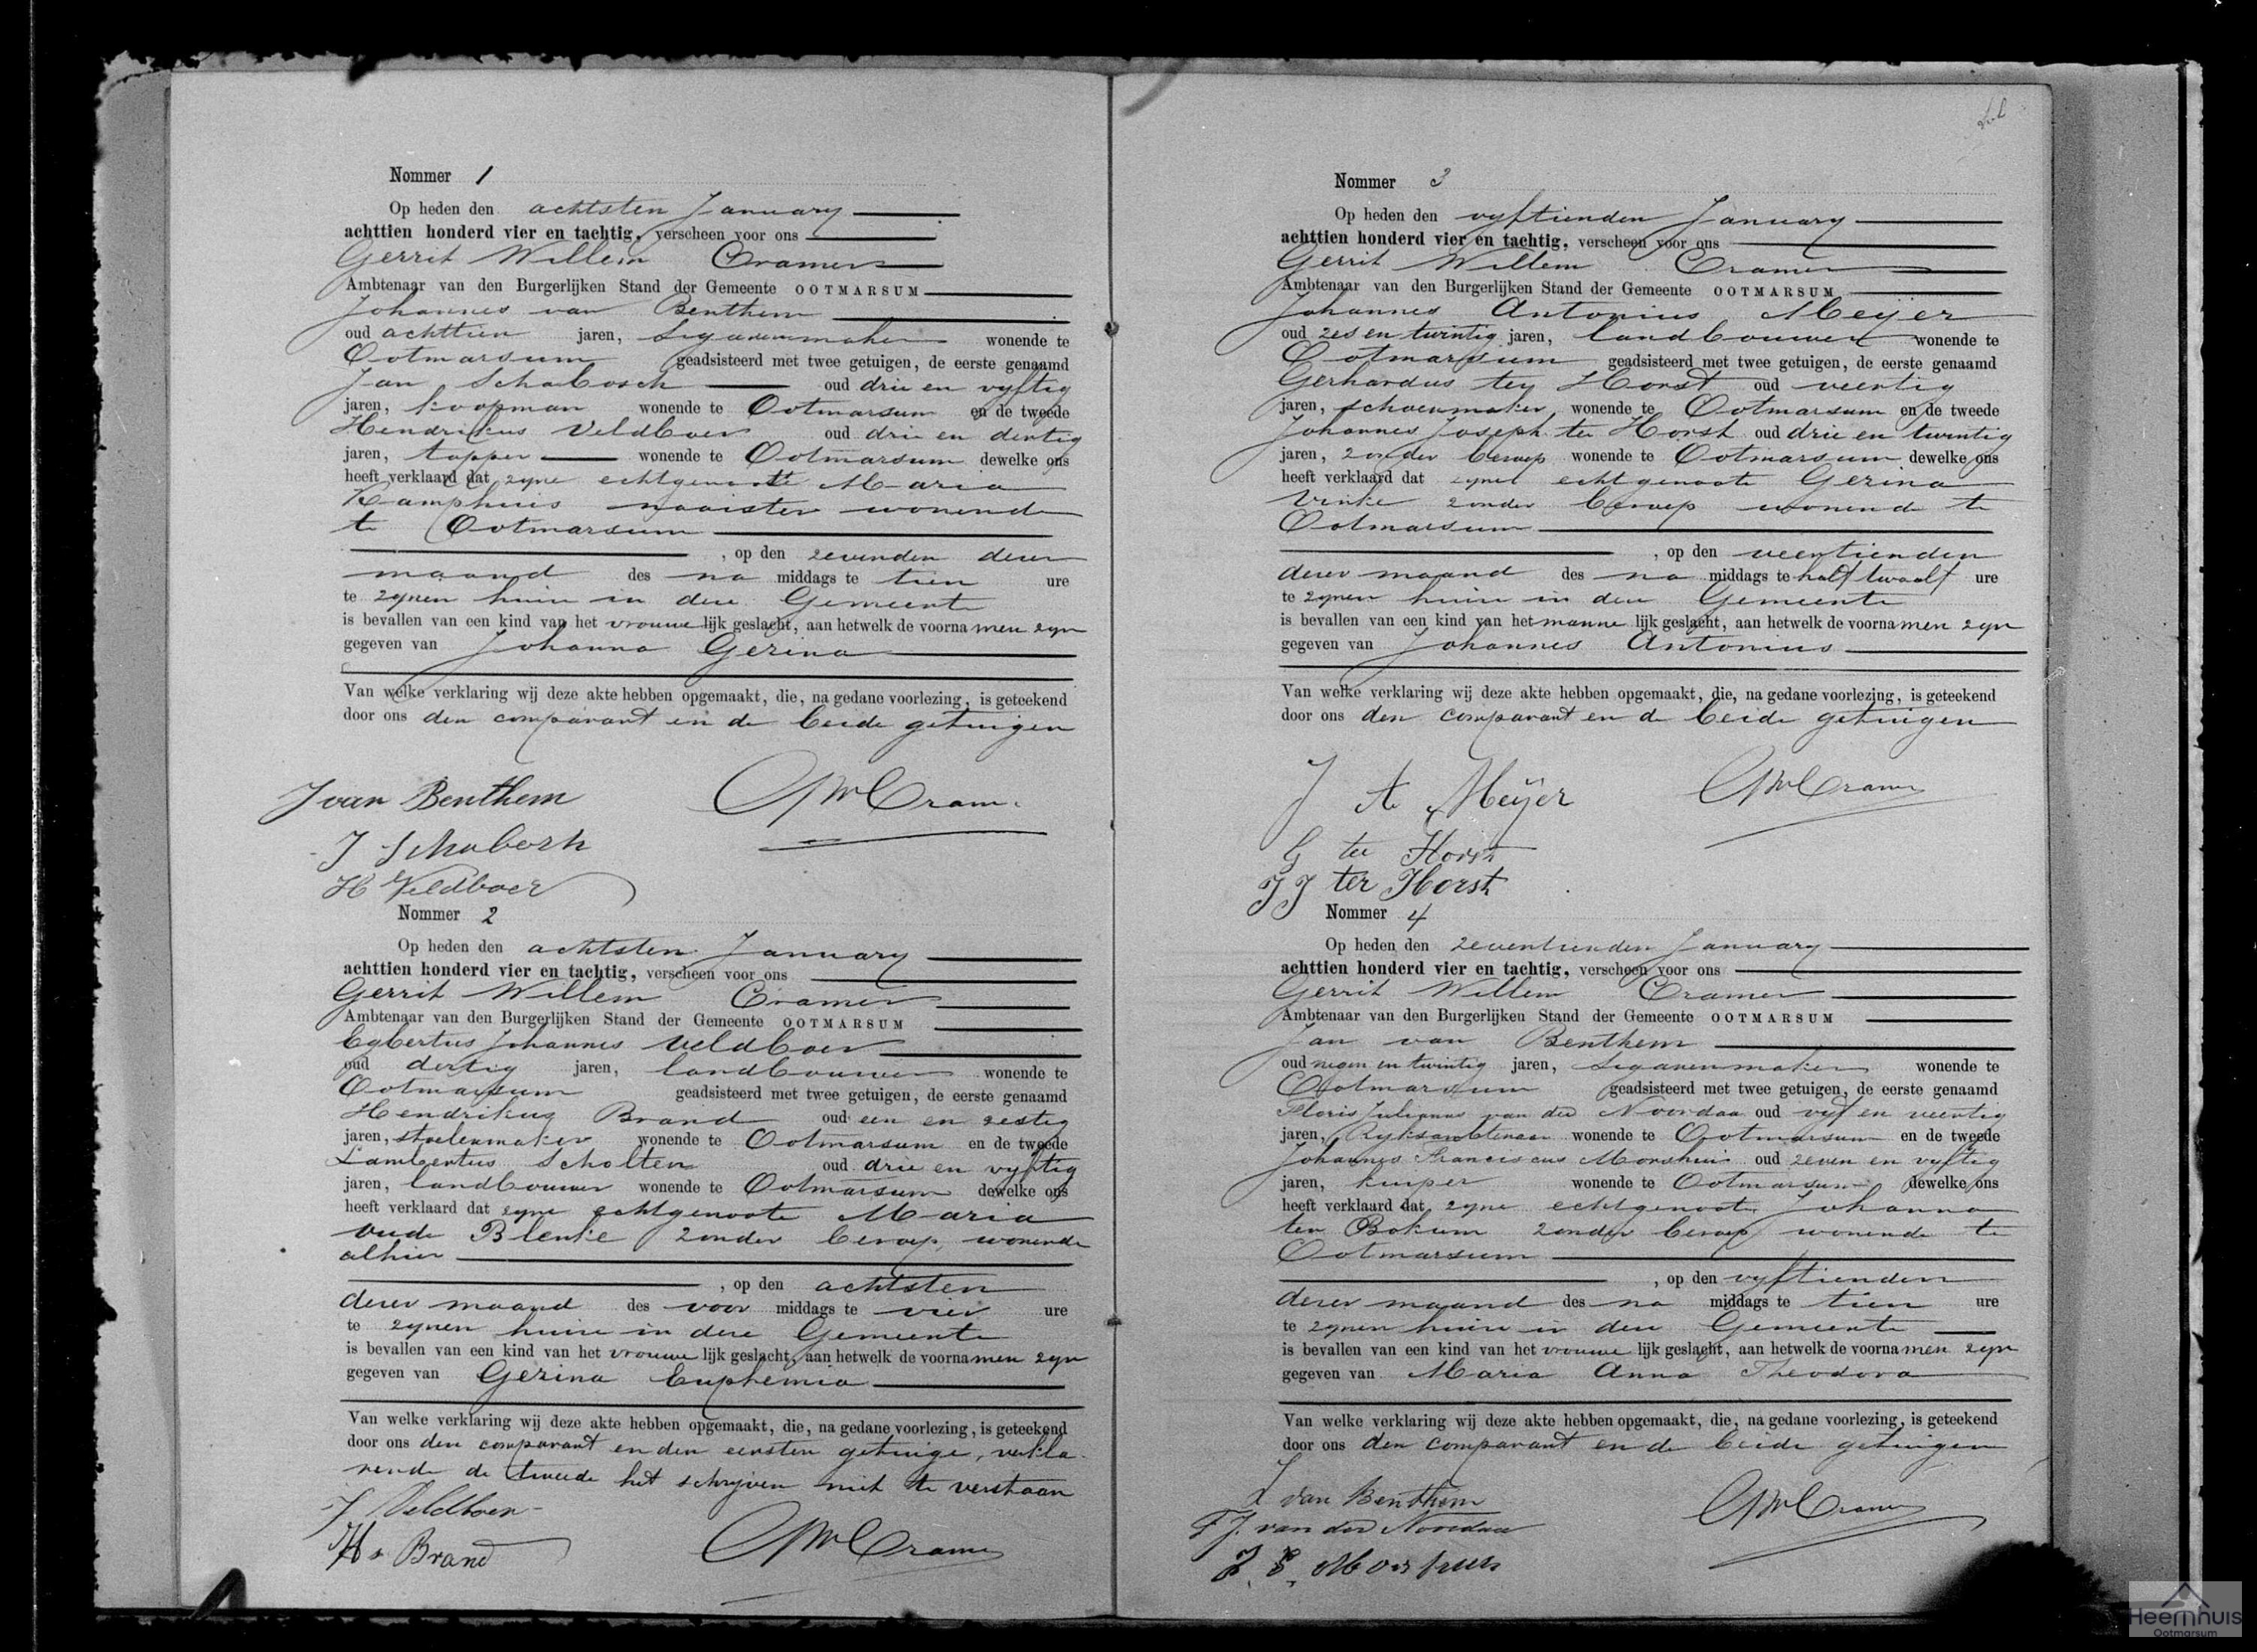 Nommer 1
Op heden den achtsten January
achttien honderd vier en tachtig, verscheen voor ons
Gerrit Willem Cramer
Ambtenaar van den Burgerlijken Stand der Gemeente OOTMARSUM
Johannes van Benthem
oud achttien jaren, Sigarenmaker wonende te
Ootmarsum geadsisteerd met twee getuigen, de eerste genaamd
Jan Schabosch oud drie en vyftig
jaren, koopman wonende te Ootmarsum en de tweede
Hendrikus Veldboer oud drie en dertig
jaren, tapper wonende te Ootmarsum dewelke ons
heeft verklaard dat zyne echtgenootte Maria
Kamphuis naaister wonende
te Ootmarsum
, op den zevenden dezer
maand des na middags te tien ure
te zynen huize in deze Gemeente
is bevallen van een kind van het vrouwelijk geslacht, aan hetwelk de voornamen zyn
gegeven van Johanna Gezina
Van welke verklaring wij deze akte hebben opgemaakt, die, na gedane voorlezing, is geteekend
door ons den comparant en de beide getuigen
J van Benthem GWCramer
J Schabosch
H Veldboer
Nommer 2
Op heden den achtsten January
achttien honderd vier en tachtig, verscheen voor ons
Gerrit Willem Cramer
Ambtenaar van den Burgerlijken Stand der Gemeente OOTMARSUM
Egbertus Johannes Veldboer
oud dertig jaren, landbouwer wonende te
Ootmarsum geadsisteerd met twee getuigen, de eerste genaamd
Hendrikus Brand oud een en zestig
jaren, stoelenmaker wonende te Ootmarsum en de tweede
Lambertus Scholten oud drie en vyftig
jaren, landbouwer wonende te Ootmarsum dewelke ons
heeft verklaard dat zyne echtgenoote Maria
oude Blenke zonder beroep, wonende
alhier
, op den achtsten
dezer maand des voor middags te vier ure
te zynen huize in deze Gemeente
is bevallen van een kind van het vrouwelijk geslacht, aan hetwelk de voornamen zyn
gegeven van Gezina Euphemia
Van welke verklaring wij deze akte hebben opgemaakt, die, na gedane voorlezing, is geteekend
door ons den comparant en den eersten getuige, verkla-
rende de tweede het schrijven niet te verstaan
J Veldboer
Hs Brand GWCramer
Nommer 3
Op heden den vyftienden January
achttien honderd vier en tachtig, verscheen voor ons
Gerrit Willem Cramer
Ambtenaar van den Burgerlijken Stand der Gemeente OOTMARSUM
Johannes Antonius Meijer
oud zes en twintig jaren, landbouwer wonende te
Ootmarsum geadsisteerd met twee getuigen, de eerste genaamd
Gerhardus ter Horst oud veertig
jaren, schoenmaker wonende te Ootmarsum en de tweede
Johannes Joseph ter Horst oud drie en twintig
jaren, zonder beroep wonende te Ootmarsum dewelke ons
heeft verklaard dat zyne echtgenoote Gezina
Vinke zonder beroep wonende te
Ootmarsum
, op den veertienden
dezer maand des na middags te half twaalf ure
te zynen huize in deze Gemeente
is bevallen van een kind van het mannelijk geslacht, aan hetwelk de voornamen zyn
gegeven van Johannes Antonius
Van welke verklaring wij deze akte hebben opgemaakt, die, na gedane voorlezing, is geteekend
door ons den comparant en de beide getuigen
J A Meijer GWCramer
G ter Horst
J J ter Horst
Nommer 4
Op heden den zeventienden January
achttien honderd vier en tachtig, verscheen voor ons
Gerrit Willem Cramer
Ambtenaar van den Burgerlijken Stand der Gemeente OOTMARSUM
Jan van Benthem
oud negen en twintig jaren, Sigarenmaker wonende te
Ootmarsum geadsisteerd met twee getuigen, de eerste genaamd
Floris Julianus van der Noordaa oud vyf en veertig
jaren, Ryksambtenaar wonende te Ootmarsum en de tweede
Johannes Franciscus Morshuis oud zeven en vyftig
jaren, kuiper wonende te Ootmarsum dewelke ons
heeft verklaard dat zyne echtgenoote Johanna
ten Bokum zonder beroep wonende te
Ootmarsum
, op den vyftienden
dezer maand des na middags te tien ure
te zynen huize in deze Gemeente
is bevallen van een kind van het vrouwelijk geslacht, aan hetwelk de voornamen zyn
gegeven van Maria Anna Theodora
Van welke verklaring wij deze akte hebben opgemaakt, die, na gedane voorlezing, is geteekend
door ons den comparant en de beide getuigen
J van Benthem GWCramer
F J. van der Noordaa
J. F. Morshuis
Heemhuis
Ootmarsum